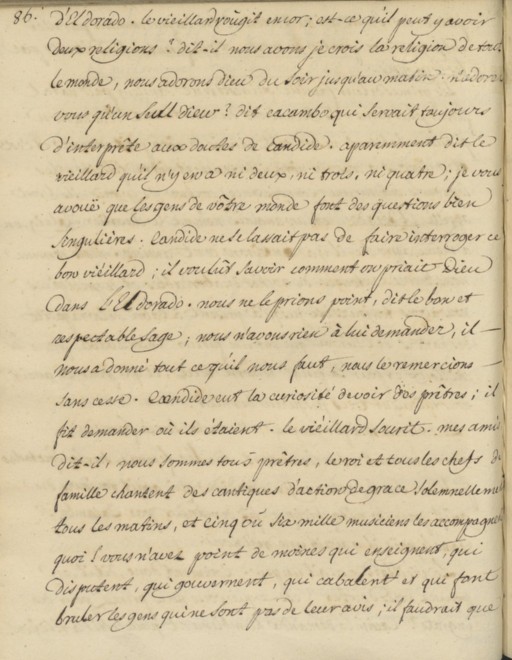 86. d'Eldorado. le vieillard rougit encor; est-ce qu'il peut y avoir
deux religions? dit-il nous avons je crois la religion de tout
le monde, nous adorons dieu du soir jusqu'au matin. n'adorez
vous qu'un seul dieu? dit cacambo qui servait toujours
d'interprête aux doutes de Candide. aparemment dit le
vieillard qu'il n'y en a ni deux, ni trois, ni quatre; je vous
avouë que les gens de vôtre monde font des questions bien
singulières. Candide ne se lassait pas de faire interroger ce
bon viéillard; il voulut savoir comment on priait Dieu
dans l'Eldorado. nous ne le prions point, dit le bon et
respectable sage; nous n'avons rien à lui demander, il
nous a donné tout ce qu'il nous faut, nous le remercions
sans cesse. Candide eut la curiosité de voir des prêtres; il
fit demander où ils étaient. le viéillard sourit. mes amis
dit-il, nous sommes tous prêtres, le roi et tous les chefs de
famille chantent des cantiques d'action de grace solemnellement
tous les matins, et cinq ou six mille musiciens les accompagnent
quoi! vous n'avez point de moines qui enseignent, qui
disputent, qui gouvernent, qui cabalent et qui font
bruler les gens qui ne sont pas de leur avis; il faudrait que